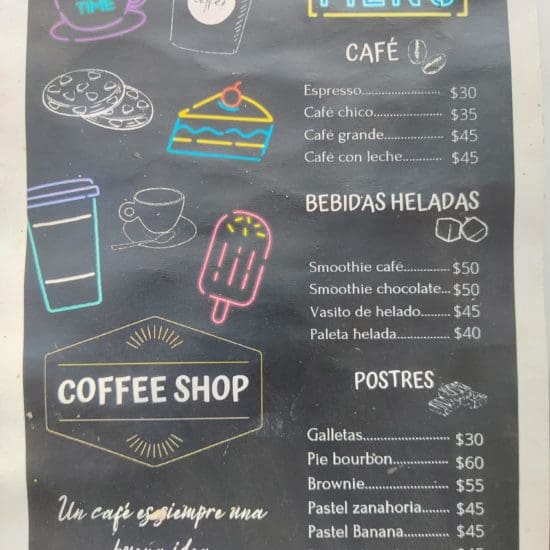 TIME
Coffee
MENU
CAFÉ
Espresso........................ $30
Café chico................ $35
Café grande............. $45
Café con leche.......... $45
BEBIDAS HELADAS
Smoothie café............. $50
Smoothie chocolate... $50
Vasito de helado........ $45
Paleta helada.............. $40
POSTRES
Galletas......................... $30
Pie bourbon................ $60
Brownie........................ $55
Pastel zanahoria....... $45
Pastel Banana............ $45
COFFEE SHOP
Un café es siempre una
buena idea